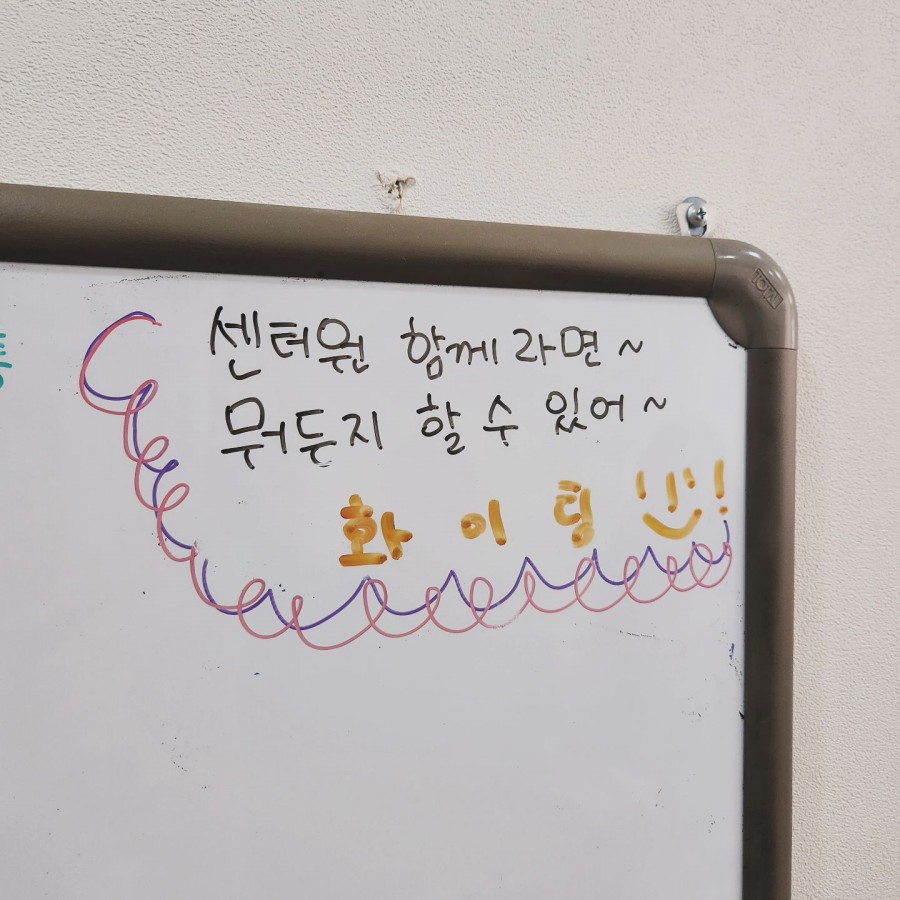 센터원 함께라면~
뭐든지 할 수 있어~
화이팅!!
TOTAL